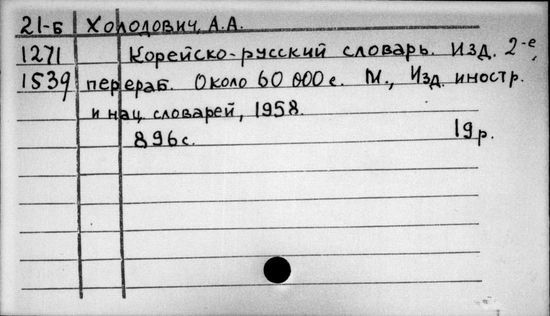 21-Б Холодович, А.А.
1271 Корейско-русский словарь. Изд. 2-е,
1539 перераб. Около 60 000 с. М., Изд. иностр.
и нац. словарей, 1958.
896 с. 19 р.